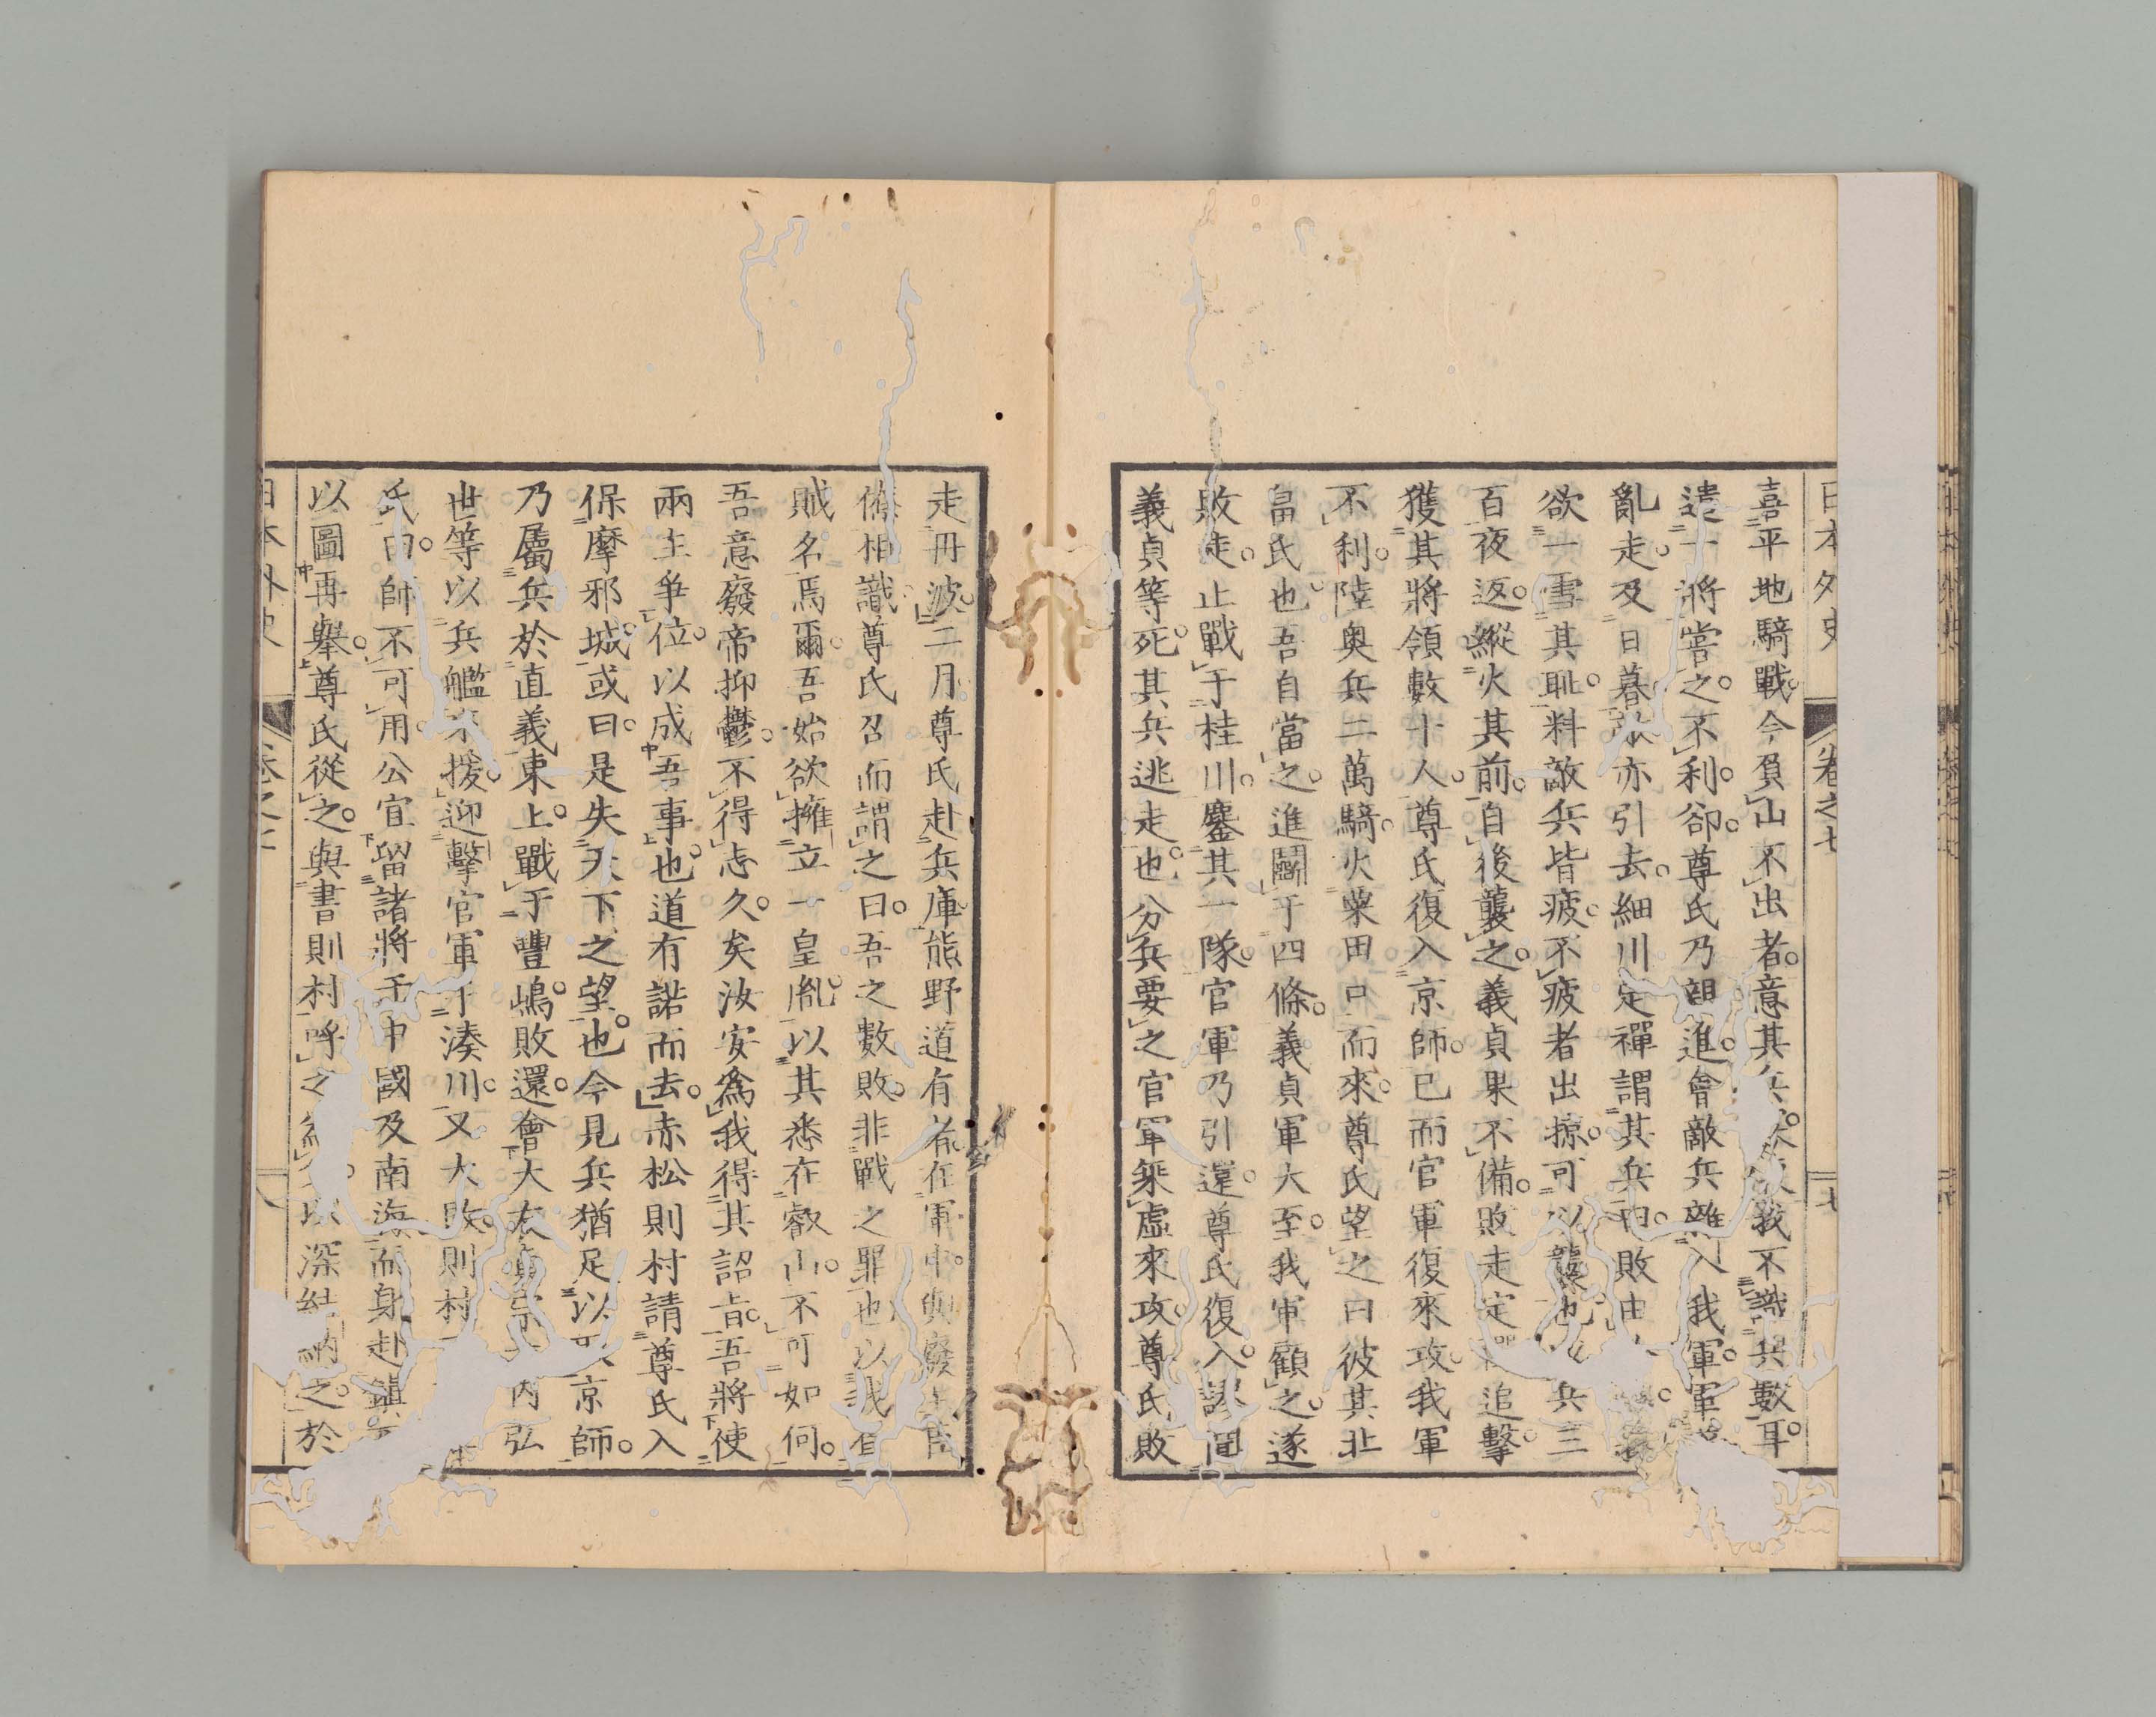 日本外史 卷之七 七
喜平地騎戰。今負山不出者。意其兵我不識兵數耳。
遣一將嘗之。不利。卻。尊氏乃親進。會敵兵雜入我軍。軍
亂走。及日暮敵亦引去。細川定禪謂其兵曰。敗由
欲一雪其恥。料敵兵皆疲。不疲者出掠。可以襲也。兵三
百夜返。縱火其前。自後襲之。義貞果不備。敗走。定禪追擊。
獲其將領數十人。尊氏復入京師。已而官軍復來攻。我軍
不利。陸奧兵二萬騎。火粟田口而來。尊氏望之曰。彼其北
畠氏也。吾自當之。進鬭于四條。義貞軍大至。我軍顧之。遂
敗走。止戰于桂川。鏖其一隊。官軍乃引還。尊氏復入。謬聞
義貞等死。其兵逃走也。分兵要之。官軍乘虛來攻。尊氏敗
走丹波。二月。尊氏赴兵庫。熊野道有在軍中。與廢
條相識。尊氏召而謂之曰。吾之數敗。非戰之罪也。以我負
賊名焉爾。吾始欲擁立一皇胤。以其悉在叡山。不可如何。
吾意廢帝抑鬱。不得志久矣。汝安爲我得其詔旨。吾將使
兩主爭位。以成吾事也。道有諾而去。赤松則村請尊氏入
保摩邪城。或曰。是失天下之望也。今見兵猶足以京師。
乃屬兵於直義東上。戰于豐嶋。敗還。會大友貞宗大內弘
世等以兵艦來援。迎擊官軍于湊川。又大敗。則村
氏曰。師不可用。公宜留諸將于中國及南海。而身赴鎮
以圖再舉。尊氏從之。與書則村。呼之深結納之。於
日本外史 卷之七 八